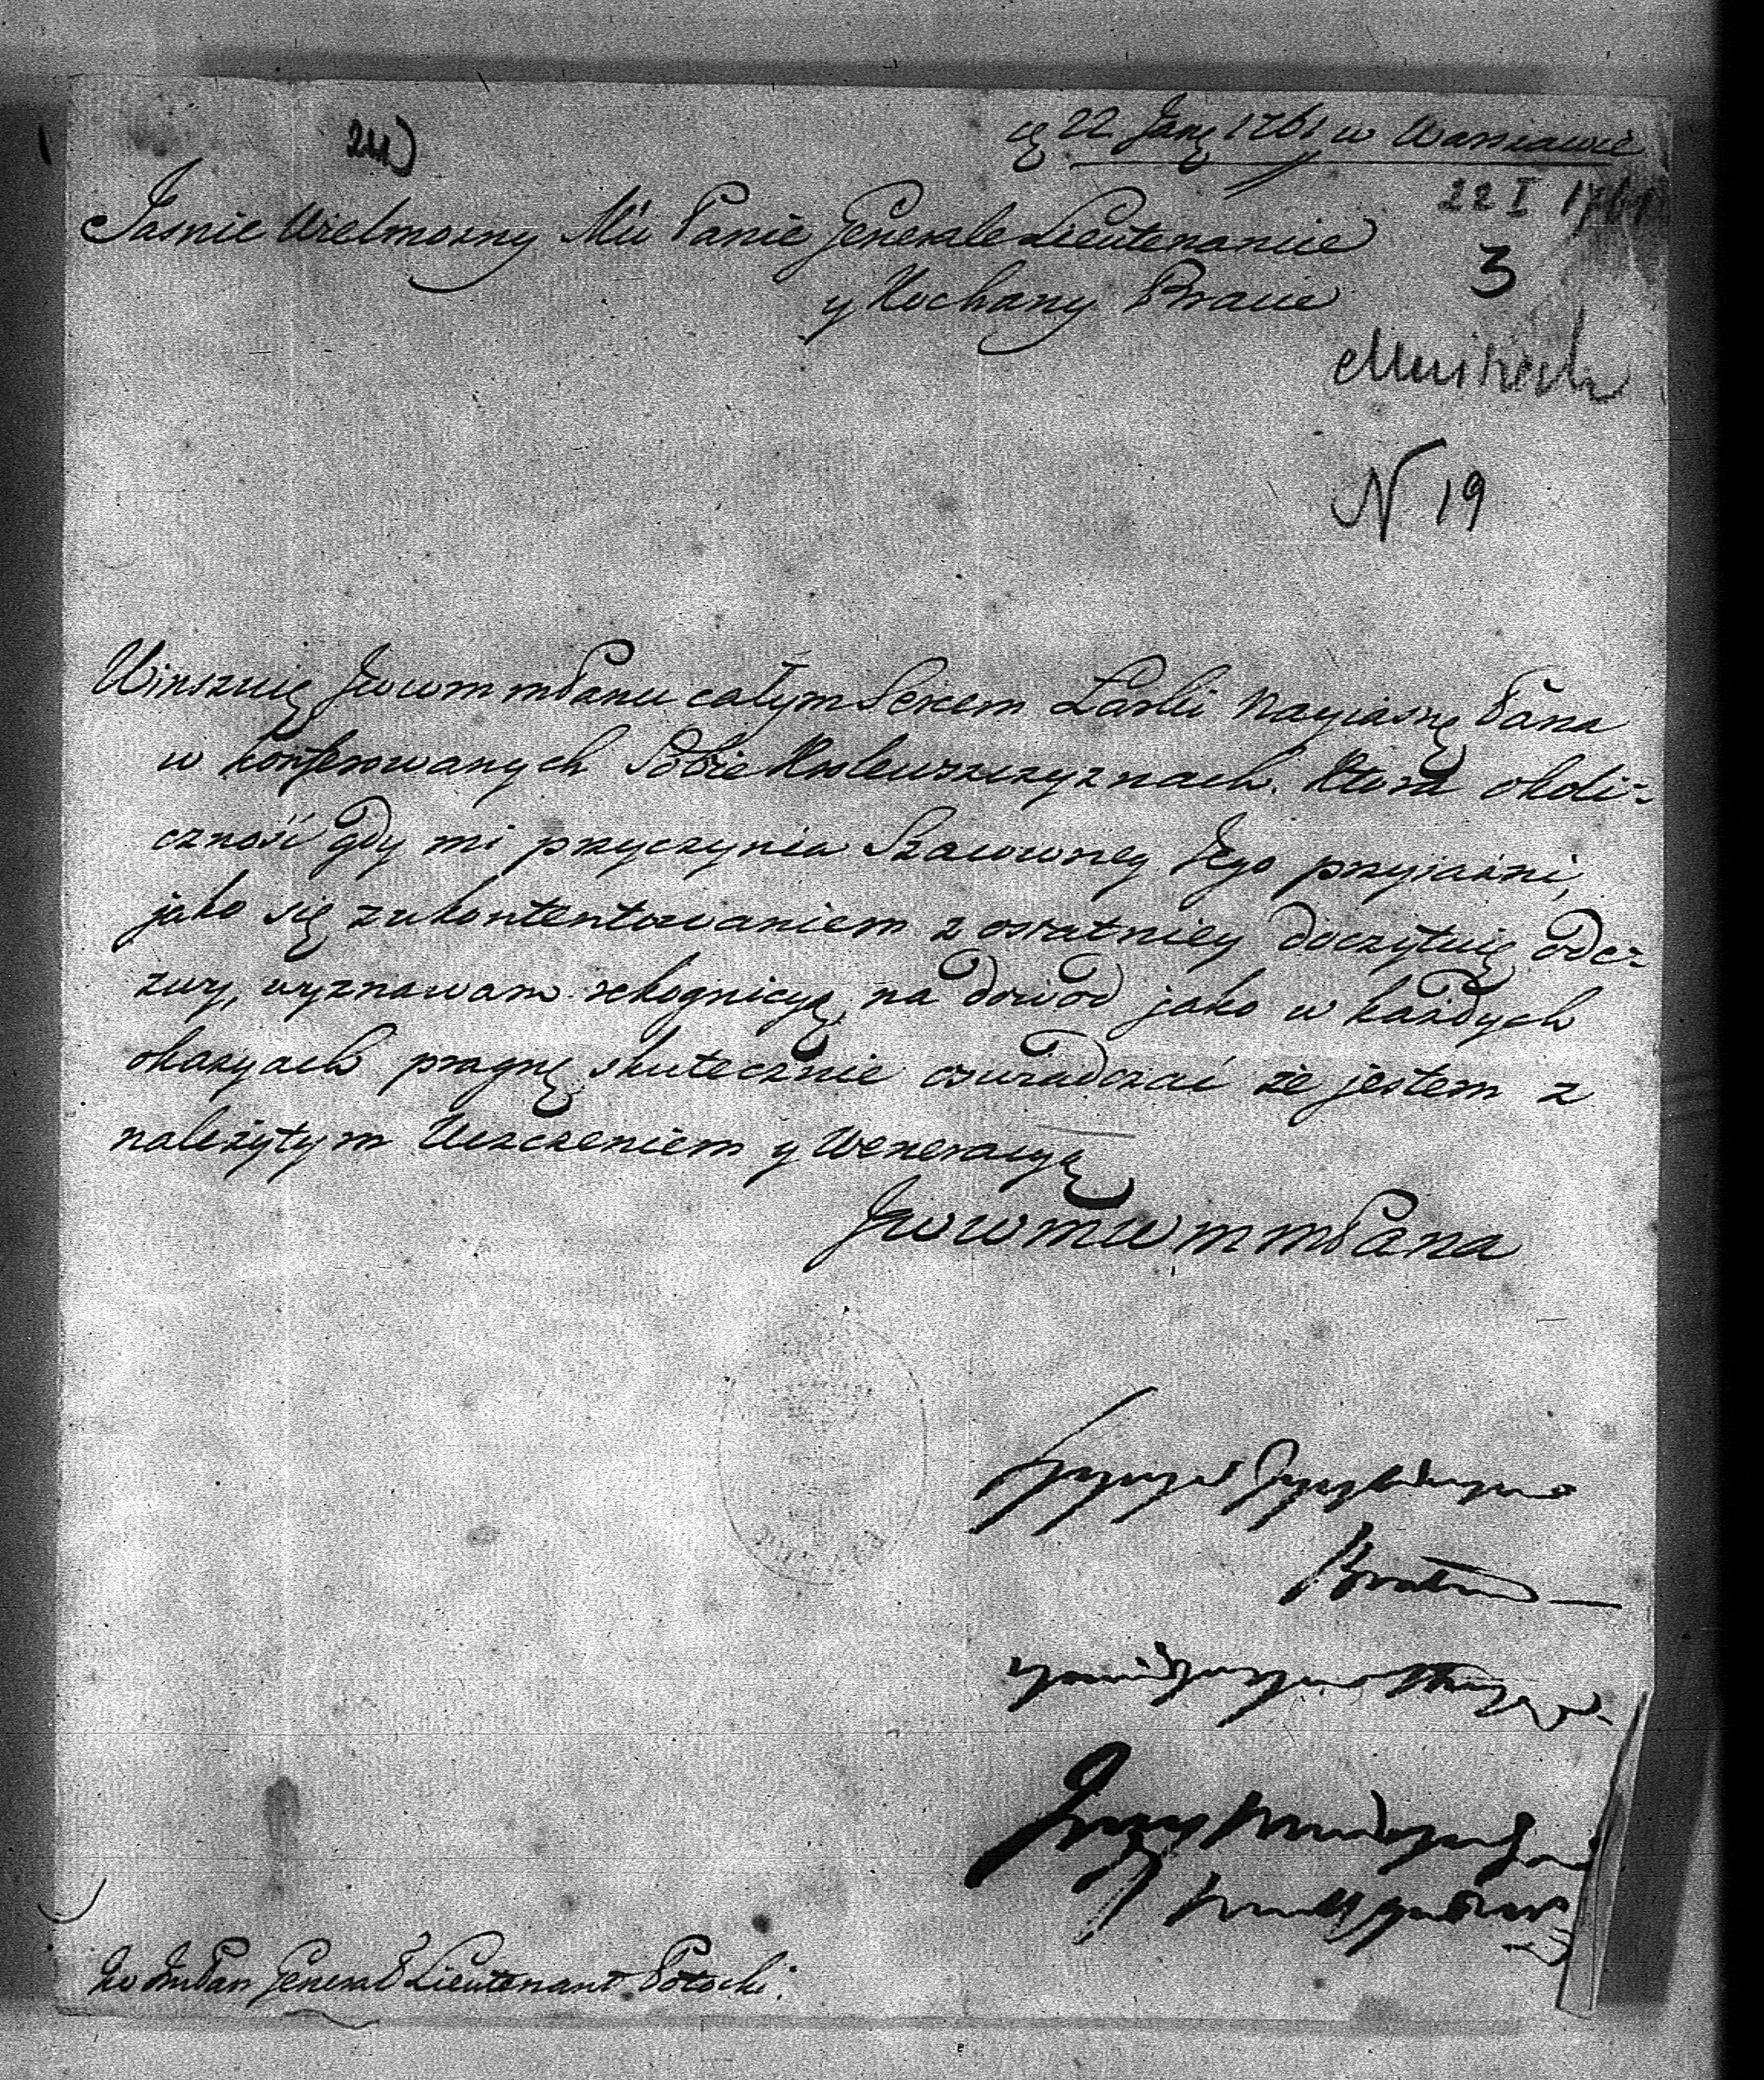 24)
22 Janȩ 1761 w Warszawie
22 I 1761
Jasnie Wielmozny Mci Panie Generale Lieutenancie
3
y Kochany Bracie
Mniszech
N 19
Winszuię Jwwm mPanu całym Sercem Łaski Nayiasnẹ Pana
w konferowanych Sobie Krolewszczyznach. Ktora okoli=
czność gdy mi przyczynia Szacowney Jego przyiazni,
jako się z ukontentowaniem z ostatniey doczytuię odez=
zwy, wyznawam rekognicyą, na dowod jako w każdych
okazyach pragnę skutecznie oswiadczać że jestem z
należytym Uszczeniem y Weneracyą
JwwmW m mPana
Bratem
Jw JmPan General Lieutenant Potocki.